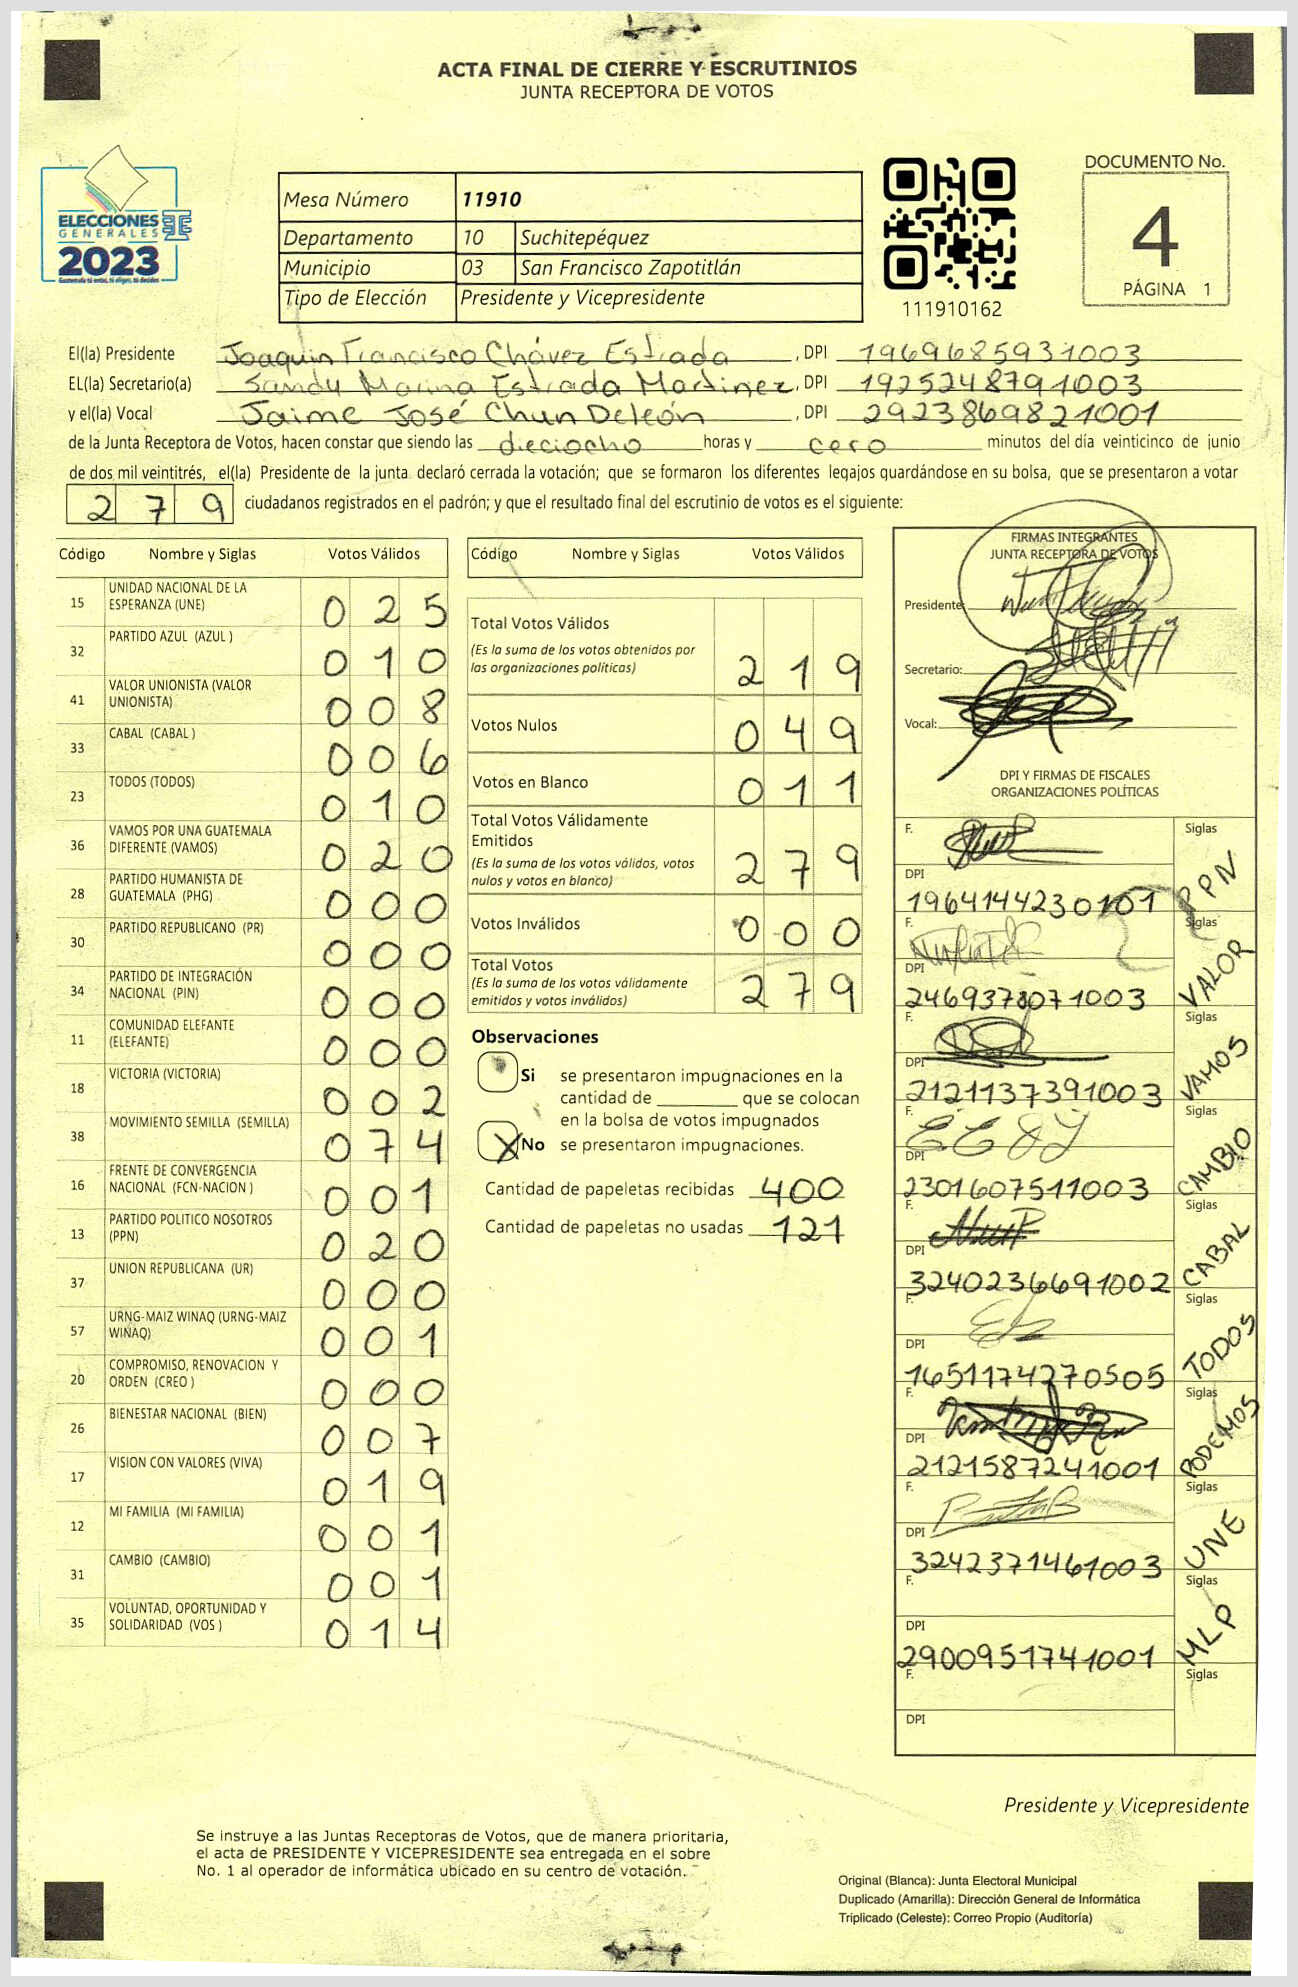 ACTA FINAL DE CIERRE Y ESCRUTINIOS
JUNTA RECEPTORA DE VOTOS
ELECCIONES
GENERALES
2023
Mesa Número 11910
Departamento 10 Suchitepéquez
Municipio 03 San Francisco Zapotitlán
Tipo de Elección Presidente y Vicepresidente
111910162
DOCUMENTO No.
4
PÁGINA 1
El(la) Presidente Joaquin Francisco Chávez Estrada, DPI 1969685931003
EL(la) Secretario(a) Sandy Marina Estrada Martinez, DPI 1925248791003
y el(la) Vocal Jaime José Chun Deleón, DPI 2923869821001
de la Junta Receptora de Votos, hacen constar que siendo las dieciocho horas y cero minutos del día veinticinco de junio
de dos mil veintitrés, el(la) Presidente de la junta declaró cerrada la votación; que se formaron los diferentes legajos guardándose en su bolsa, que se presentaron a votar
279 ciudadanos registrados en el padrón; y que el resultado final del escrutinio de votos es el siguiente:
Código Nombre y Siglas Votos Válidos
15 UNIDAD NACIONAL DE LA ESPERANZA (UNE) 025
32 PARTIDO AZUL (AZUL ) 010
41 VALOR UNIONISTA (VALOR UNIONISTA) 008
33 CABAL (CABAL ) 006
23 TODOS (TODOS) 010
36 VAMOS POR UNA GUATEMALA DIFERENTE (VAMOS) 020
28 PARTIDO HUMANISTA DE GUATEMALA (PHG) 000
30 PARTIDO REPUBLICANO (PR) 000
34 PARTIDO DE INTEGRACIÓN NACIONAL (PIN) 000
11 COMUNIDAD ELEFANTE (ELEFANTE) 000
18 VICTORIA (VICTORIA) 002
38 MOVIMIENTO SEMILLA (SEMILLA) 074
16 FRENTE DE CONVERGENCIA NACIONAL (FCN-NACION ) 001
13 PARTIDO POLITICO NOSOTROS (PPN) 020
37 UNION REPUBLICANA (UR) 000
57 URNG-MAIZ WINAQ (URNG-MAIZ WINAQ) 001
20 COMPROMISO, RENOVACION Y ORDEN (CREO ) 000
26 BIENESTAR NACIONAL (BIEN) 007
17 VISION CON VALORES (VIVA) 019
12 MI FAMILIA (MI FAMILIA) 001
31 CAMBIO (CAMBIO) 001
35 VOLUNTAD, OPORTUNIDAD Y SOLIDARIDAD (VOS ) 014
Código Nombre y Siglas Votos Válidos
Total Votos Válidos 219
(Es la suma de los votos obtenidos por
las organizaciones políticas)
Votos Nulos 049
Votos en Blanco 011
Total Votos Válidamente
Emitidos 279
(Es la suma de los votos válidos, votos
nulos y votos en blanco)
Votos Inválidos 000
Total Votos 279
(Es la suma de los votos válidamente
emitidos y votos inválidos)
Observaciones
Si se presentaron impugnaciones en la
cantidad de ________ que se colocan
en la bolsa de votos impugnados
X No se presentaron impugnaciones.
Cantidad de papeletas recibidas 400
Cantidad de papeletas no usadas 121
FIRMAS INTEGRANTES
JUNTA RECEPTORA DE VOTOS
Presidente:
Secretario:
Vocal:
DPI Y FIRMAS DE FISCALES
ORGANIZACIONES POLÍTICAS
F. Siglas PPN
DPI 1964144230101
F. Siglas VALOR
DPI 2469378071003
F. Siglas VAMOS
DPI 2121137391003
F. Siglas CAMBIO
DPI 2301607511003
F. Siglas CABAL
DPI 3240236691002
F. Siglas TODOS
DPI 1651174270505
F. Siglas PODEMOS
DPI 2121587241001
F. Siglas UNE
DPI 3242371461003
F. Siglas MLP
DPI 2900951741001
F. Siglas
DPI
Presidente y Vicepresidente
Se instruye a las Juntas Receptoras de Votos, que de manera prioritaria,
el acta de PRESIDENTE Y VICEPRESIDENTE sea entregada en el sobre
No. 1 al operador de informática ubicado en su centro de votación.
Original (Blanca): Junta Electoral Municipal
Duplicado (Amarilla): Dirección General de Informática
Triplicado (Celeste): Correo Propio (Auditoría)